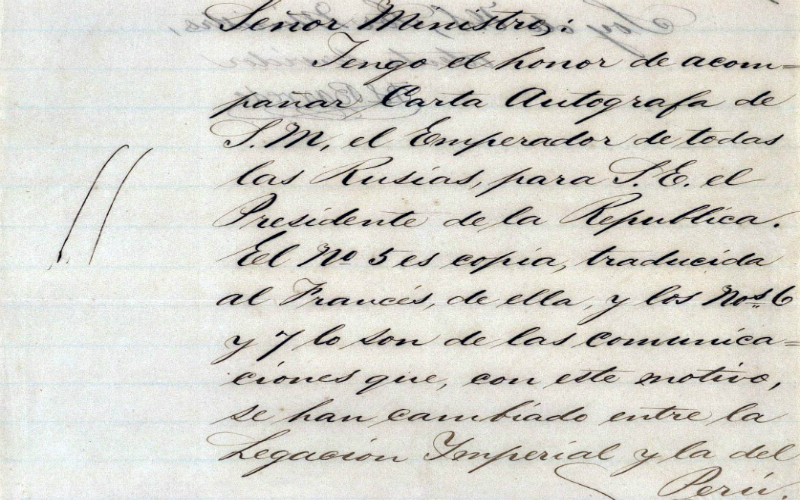 Señor Ministro:
Tengo el honor de acom=
pañar Carta Autografa de
S. M, el Emperador de todas
las Rusias, para S. E. el
Presidente de la Republica.
El Nº 5 es copia, traducida
al Francés, de ella, y los Nos 6
y 7 lo son de las comunica=
ciones que, con este motivo,
se han cambiado entre la
Legación Imperial y la del
Perú.